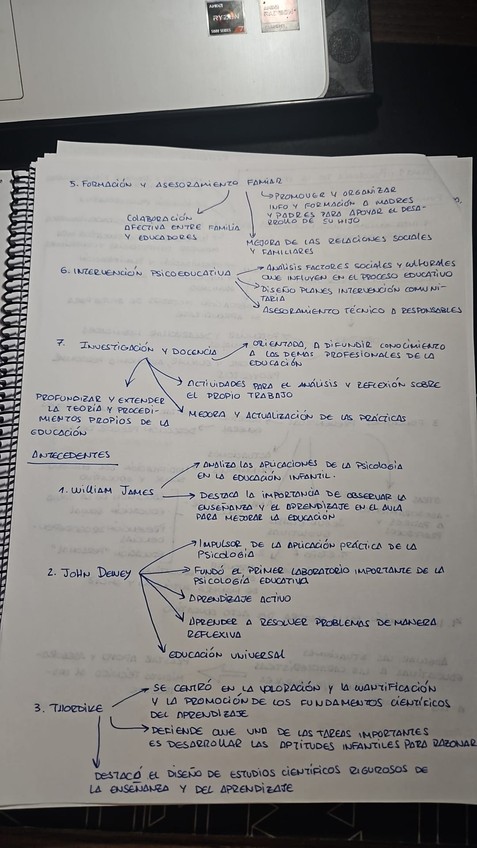 AMD
RYZEN
5. FORMACIÓN Y ASESORAMIENTO FAMIAR
PROMOVER Y ORGANIZAR
INFO Y FORMACIÓN A MADRES
Y PADRES PARA APOYAR EL DESA-
RROLLO DE SU HIJO
COLABORACIÓN
AFECTIVA ENTRE FAMILIA
Y EDUCADORES
MEJORA DE LAS RELACIONES SOCIALES
Y FAMILIARES
6. INTERVENCIÓN PSICOEDUCATIVA
ANÁLISIS FACTORES SOCIALES Y CULTURALES
QUE INFLUYEN EN EL PROCESO EDUCATIVO
DISEÑO PLANES INTERVENCIÓN COMUNI-
TARIA
ASESORAMIENTO TÉCNICO A RESPONSABLES
7. INVESTIGACIÓN Y DOCENCIA
ORIENTADA A DIFUNDIR CONOCIMIENTO
A LAS DEMÁS PROFESIONALES DE LA
EDUCACIÓN
ACTIVIDADES PARA EL ANÁLISIS Y REFLEXIÓN SOBRE
EL PROPIO TRABAJO
MEJORA Y ACTUALIZACIÓN DE LAS PRÁCTICAS
PROFUNDIZAR Y EXTENDER
LA TEORÍA Y PROCEDI-
MIENTOS PROPIOS DE LA
EDUCACIÓN
ANTECEDENTES
1. WILLIAM JAMES
ANALIZA LAS APLICACIONES DE LA PSICOLOGÍA
EN LA EDUCACIÓN INFANTIL.
DESTACA LA IMPORTANCIA DE OBSERVAR LA
ENSEÑANZA Y EL APRENDIZAJE EN EL AULA
PARA MEJORAR LA EDUCACIÓN
2. JOHN DEWEY
IMPULSOR DE LA APLICACIÓN PRÁCTICA DE LA
PSICOLOGÍA
FUNDÓ EL PRIMER LABORATORIO IMPORTANTE DE LA
PSICOLOGÍA EDUCATIVA
APRENDIZAJE ACTIVO
APRENDER A RESOLVER PROBLEMAS DE MANERA
REFLEXIVA
EDUCACIÓN UNIVERSAL
3. THORDIKE
SE CENTRÓ EN LA VALORACIÓN Y LA CUANTIFICACIÓN
Y LA PROMOCIÓN DE LOS FUNDAMENTOS CIENTÍFICOS
DEL APRENDIZAJE
DEFIENDE QUE UNA DE LAS TAREAS IMPORTANTES
ES DESARROLLAR LAS APTITUDES INFANTILES PARA RAZONAR
DESTACÓ EL DISEÑO DE ESTUDIOS CIENTÍFICOS RIGUROSOS DE
LA ENSEÑANZA Y DEL APRENDIZAJE